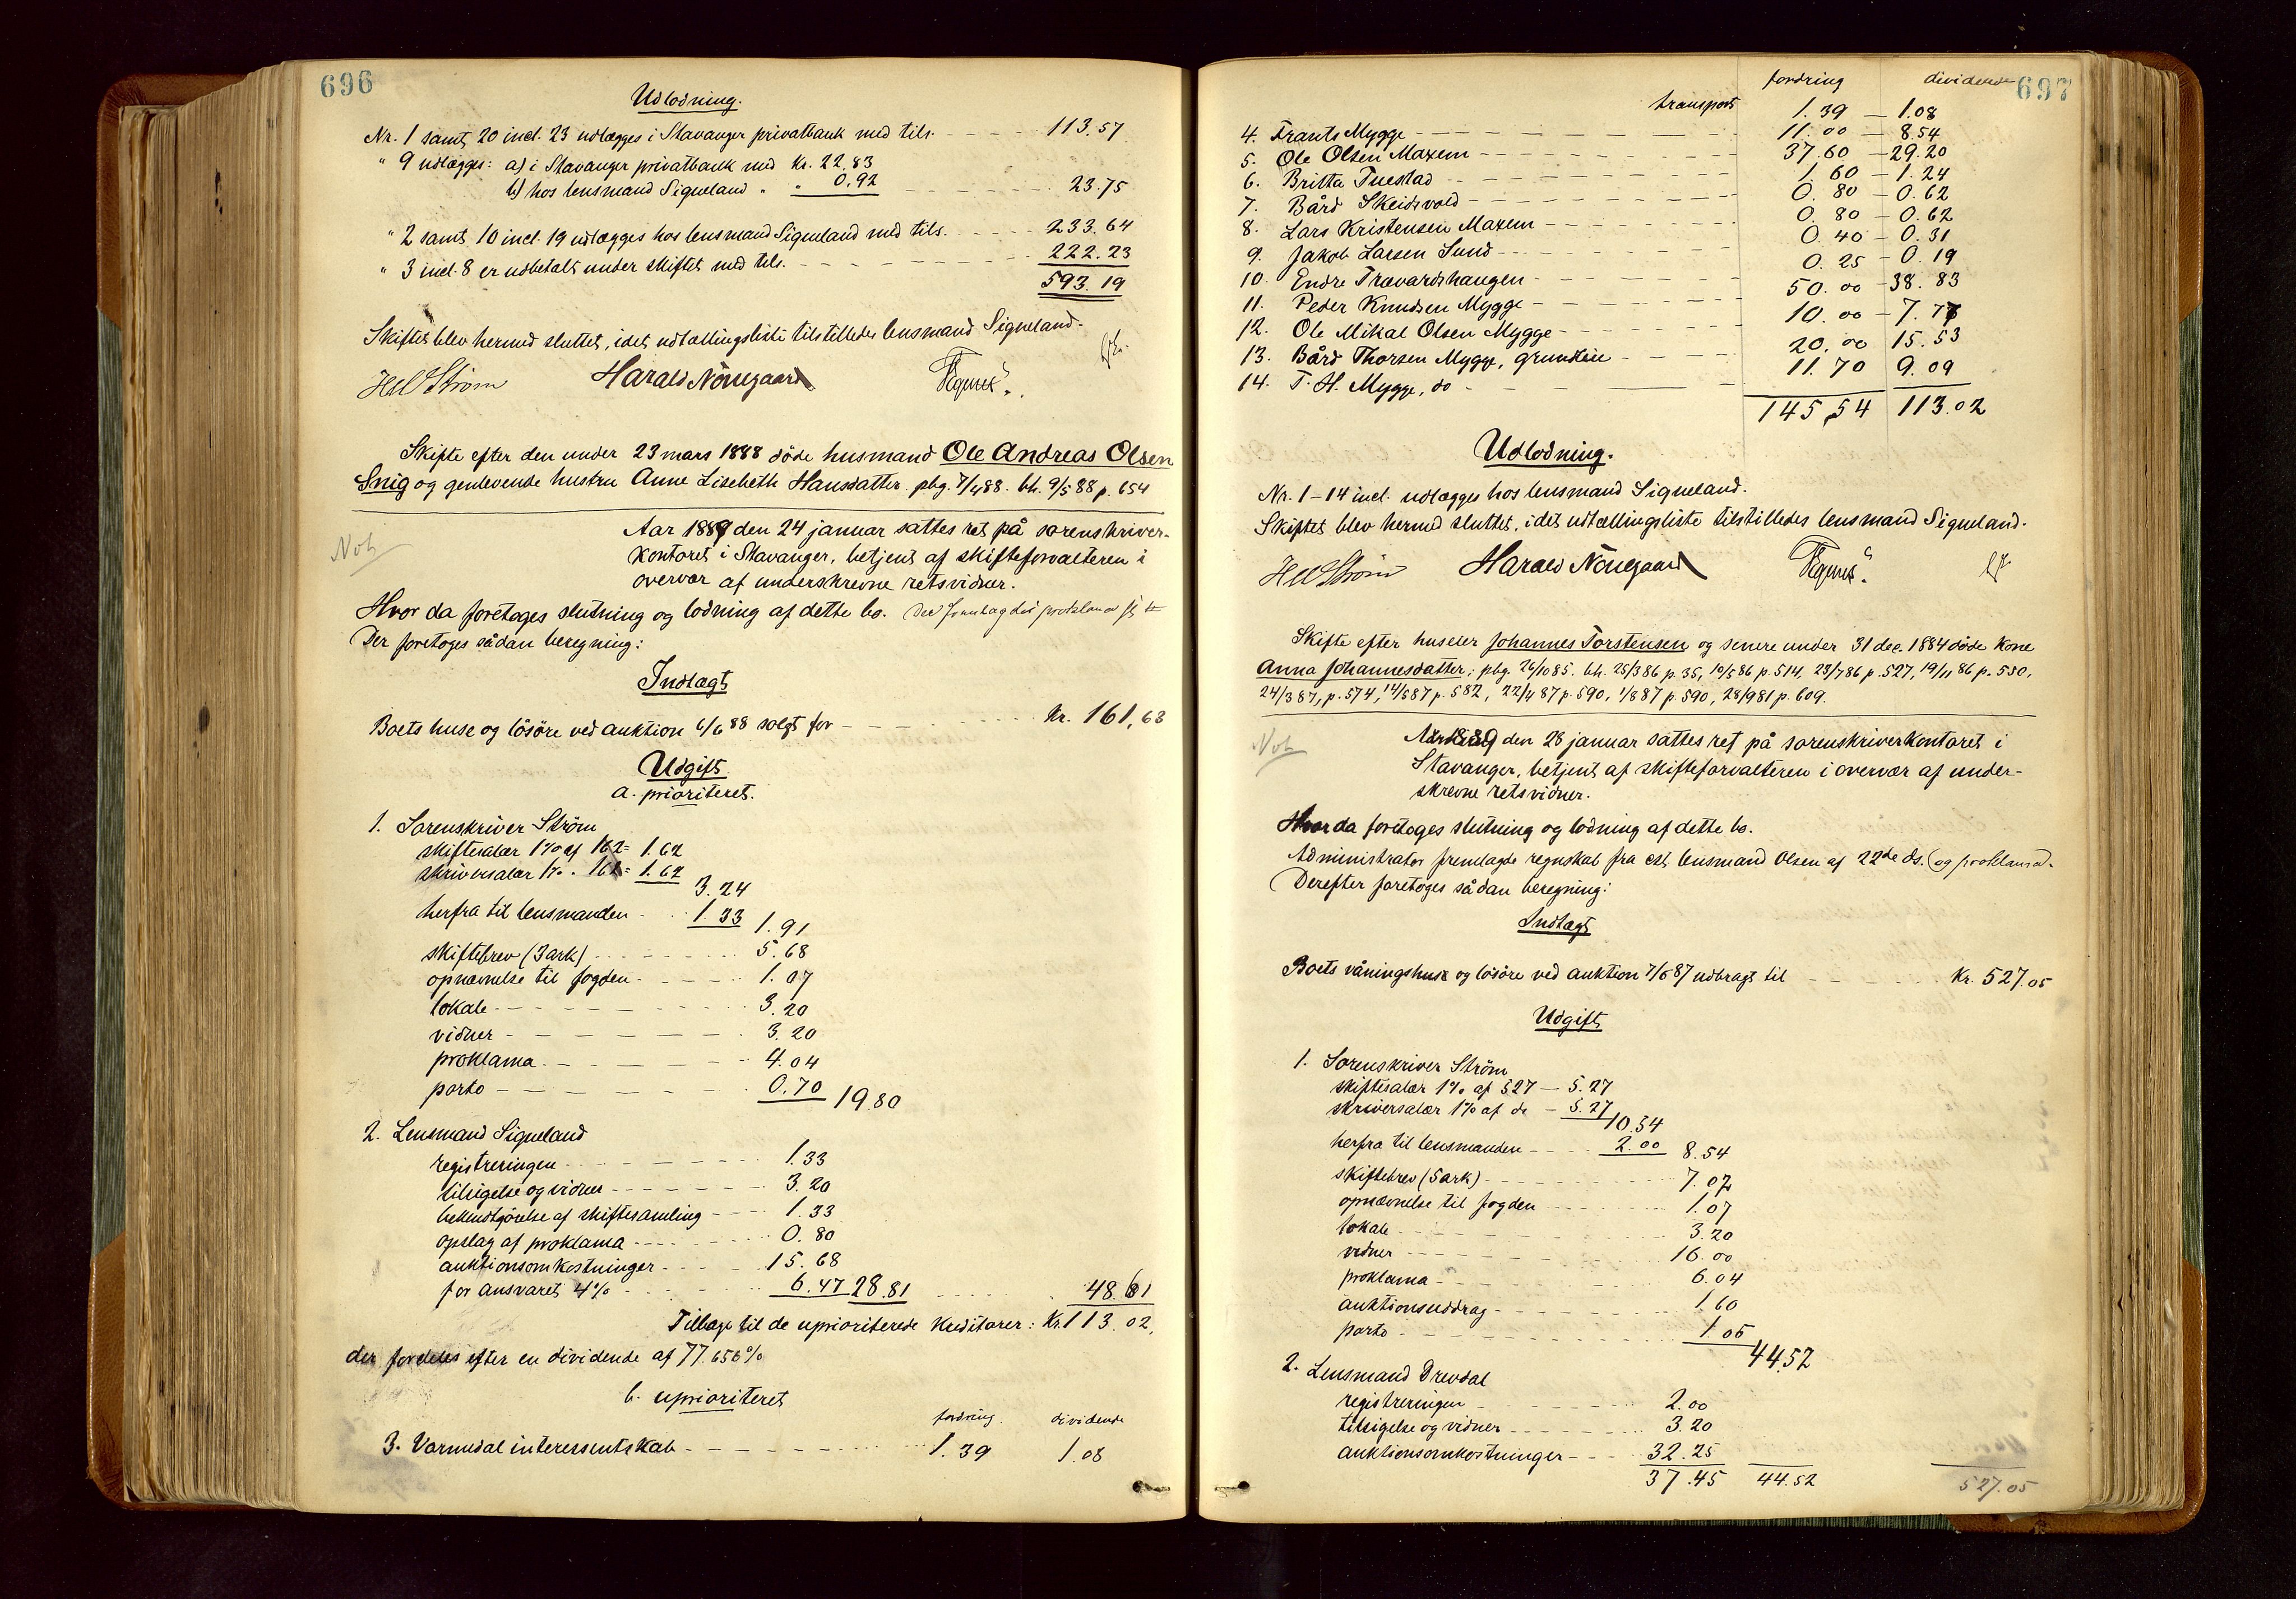 696
Udlodning.
Nr. 1 samt 20 incl. 23 udlægges i Stavanger privatbank med tils. 113.57
" 9 udlægges: a) i Stavanger privatbank med Kr. 22.83
b) hos lensmand Sigveland " " 0.92 23.75
" 2 samt 10 incl. 19 udlægges hos lensmand Sigveland med tils. 233.64
" 3 incl. 8 er udbetalt under skiftet med tils. 222.23
593.19
Skiftet blev hermed sluttet, idet udtællingsliste tilstilledes lensmand Sigveland.
HW Strøm Harald Nönegaard
Skifte efter den under 23 mars 1888 döde husmand Ole Andreas Olsen
Snig og genlevende hustru Anne Lisebeth Hansdatter. pbg. 7/4 88. bh. 9/5 88 p. 654
Not.
Aar 1889 den 24 januar sattes ret på sorenskriver-
kontoret i Stavanger, betjent af skifteforvalteren i
overvær af underskrevne retsvidner.
Hvor da foretoges slutning og lodning af dette bo. Der fremlagdes proklama
Der foretoges sådan beregning:
Indtægt
Boets huse og lösöre ved auktion 6/6 88 solgt for Kr. 161,63
Udgift
a. prioriteret.
1. Sorenskriver Ström
skiftesalær 1% af 162 = 1.62
skriversalær 1% . 162 = 1.62
3.24
herfra til lensmanden 1.33 1.91
skiftebrev (3 ark) 5.68
opnævnelse til fogden 1.07
lokale 3.20
vidner 3.20
proklama 4.04
porto 0.70 19.80
2. Lensmand Sigveland
registreringen 1.33
tilsigelse og vidner 3.20
bekendtgörelse af skiftesamling 1.33
opslag af proklama 0.80
auktionsomkostninger 15.68
for ansvaret 4% 6.47 28.81 48.61
Tilbage til de uprioriterede kreditorer: Kr. 113.02,
der fordeles efter en dividende af 77.656%
b. uprioriteret
fordring. dividende
3. Varmedal interessentskab 1.39 1.08
697
fordring dividende
transport 1.39 – 1.08
4. Frants Mygge 11.00 – 8.54
5. Ole Olsen Maxem 37.60 – 29.20
6. Britta Tuestad 1.60 – 1.24
7. Bård Skeidsvold 0.80 – 0.62
8. Lars Kristensen Maxem 0.80 – 0.62
9. Jakob Larsen Sund 0.40 – 0.31
10. Endre Trævardshaugen 0.25 – 0.19
11. Peder Knudsen Mygge 50.00 – 38.83
12. Ole Mikal Olsen Mygge 10.00 – 7.77
13. Bård Thorsen Mygge, grundleie 20.00 15.53
14. T. H. Mygge, do 11.70 9.09
145.54 113.02
Udlodning.
Nr. 1–14 incl. udlægges hos lensmand Sigveland.
Skiftet blev hermed sluttet, idet udtællingsliste tilstilledes lensmand Sigveland.
HW Strøm Harald Nönegaard
Skifte efter huseier Johannes Torstensen og senere under 31 dec. 1884 döde kone
Anna Johannesdatter; pbg. 26/10 85. bh. 25/3 86 p. 35, 10/5 86 p. 514, 23/7 86 p. 527, 19/11 86 p. 550,
24/3 87, p. 574, 14/5 87 p. 582, 22/4 87 p. 590, 1/8 87 p. 590, 28/9 81 p. 609.
Not.
Aar 1889 den 28 januar sattes ret på sorenskriverkontoret i
Stavanger, betjent af skifteforvalteren i overvær af under-
skrevne retsvidner.
Hvor da foretoges slutning og lodning af dette bo.
Administrator fremlagde regnskab fra cst. lensmand Olsen af 22de ds. (og proklama).
Derefter foretoges sådan beregning:
Indtægt
Boets våningshus og lösöre ved auktion 7/6 87 udbragt til Kr. 527.05
Udgift
1. Sorenskriver Ström
skiftesalær 1% af 527 – 5.27
skriversalær 1% af do – 5.27
10.54
herfra til lensmanden 2.00 8.54
skiftebrev (5 ark) 7.07
opnævnelse til fogden 1.07
lokale 3.20
vidner 16.00
proklama 6.04
auktionsuddrag 1.60
porto 1.05
44.52
2. Lensmand Drevdal
registreringen 2.00
tilsigelse og vidner 3.20
auktionsomkostninger 32.25
37.45 44.52 527.05